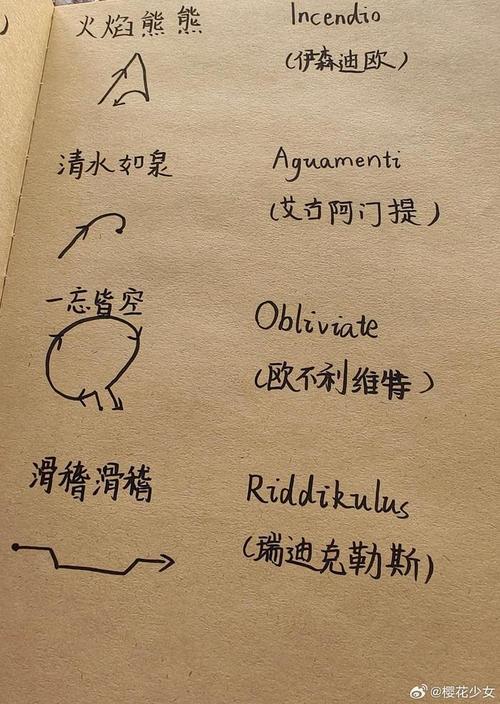 火焰熊熊 Incendio
(伊森迪欧)
清水如泉 Aguamenti
(艾古阿门提)
一忘皆空 Obliviate
(欧不利维特)
滑稽滑稽 Riddikulus
(瑞迪克勒斯)
@樱花少女